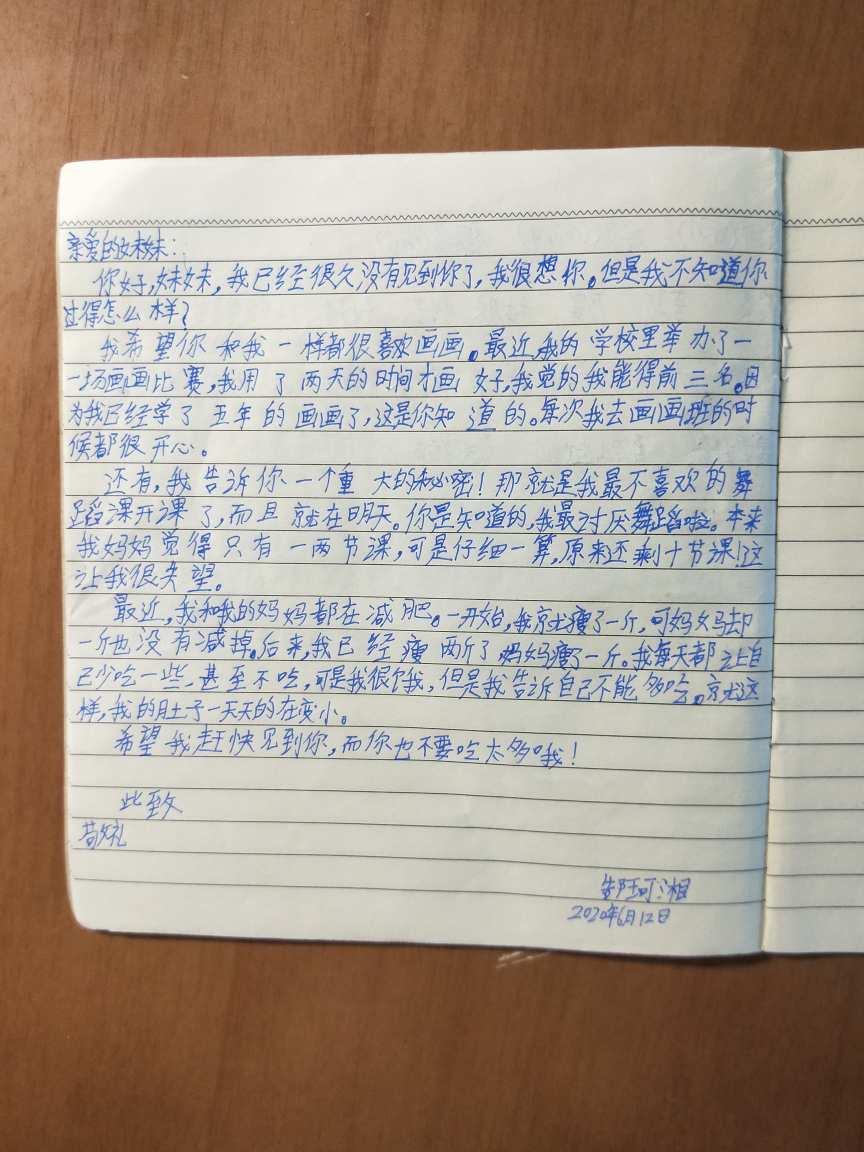 亲爱的妹妹：
你好，妹妹，我已经很久没有见到你了，我很想你。但是我不知道你
过得怎么样？
我希望你和我一样都很喜欢画画。最近，我的学校里举办了一
一场画画比赛，我用了两天的时间才画好，我觉的我能得前三名。因
为我已经学了五年的画画了，这是你知道的。每次我去画画班的时
候都很开心。
还有，我告诉你一个重大的秘密！那就是我最不喜欢的舞
蹈课开课了，而且就在明天。你是知道的，我最讨厌舞蹈啦。本来
我妈妈觉得只有一两节课，可是仔细一算，原来还剩十节课！这
让我很失望。
最近，我和我的妈妈都在减肥。一开始，我就瘦了一斤，可妈妈却
一斤也没有减掉。后来，我已经瘦两斤了，妈妈瘦了一斤。我每天都让自
己少吃一些，甚至不吃，可是我很饿，但是我告诉自己不能多吃。就这
样，我的肚子一天天的在变小。
希望我赶快见到你，而你也不要吃太多哦！
此致
敬礼
邹珂湘
2020年6月12日